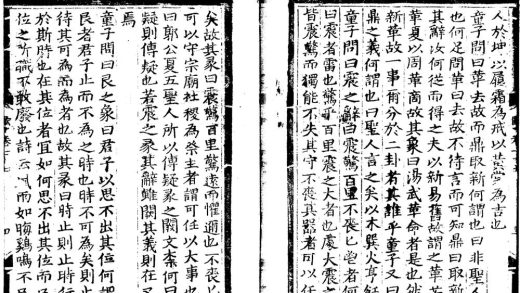 人於坤以履霜為戒以黃裳為吉也
童子問曰革去故而鼎取新何謂也曰非聖
也何足問革曰去故不待言而可知鼎曰取新
其辭汝何從而得之夫以新易舊故謂之革若
華夏以周革商故其象曰湯武革命者是也然
新革故一事爾分於二卦者其誰乎童子又曰
鼎之義何謂也曰聖人言之矣以木巽火亨飪
童子問曰震之辭曰震驚百里不喪匕鬯者何
曰震者雷也驚乎百里震之大者也處大震之
皆震驚而獨能不失其守不喪其器者可以任
矣故其彖曰震驚百里驚遠而懼邇也不喪匕
可以守宗廟社稷為祭主者謂可任以大事也
曰郭公夏五聖人所以傳疑彖之闕文柰何曰
疑則傳疑也若震之彖其辭雖闕其義則在又
焉
童子問曰艮之象曰君子以思不出其位何謂
艮者君子止而不為之時也時不可為矣則止
待其可為而為者也故其彖曰時止則止時行
於斯時也在其位者宜如何思不出其位而
位之所職不敢廢也詩云風雨如晦雞鳴不